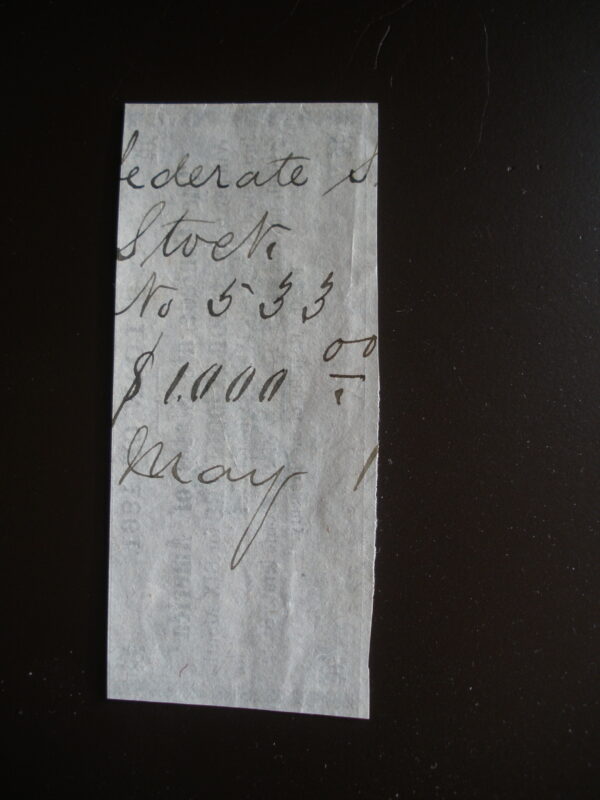 federate S
Stock.
No 533
$1.000 00
May 1